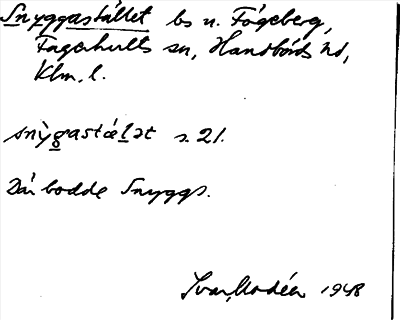 Snyggastället bs u. Fågeberg,
Fagerhults sn, Handbörds hd,
Klm. l.
snỳgastæ̀lət s. 21.
Där bodde Snyggs.
Ivar Modéer 1948